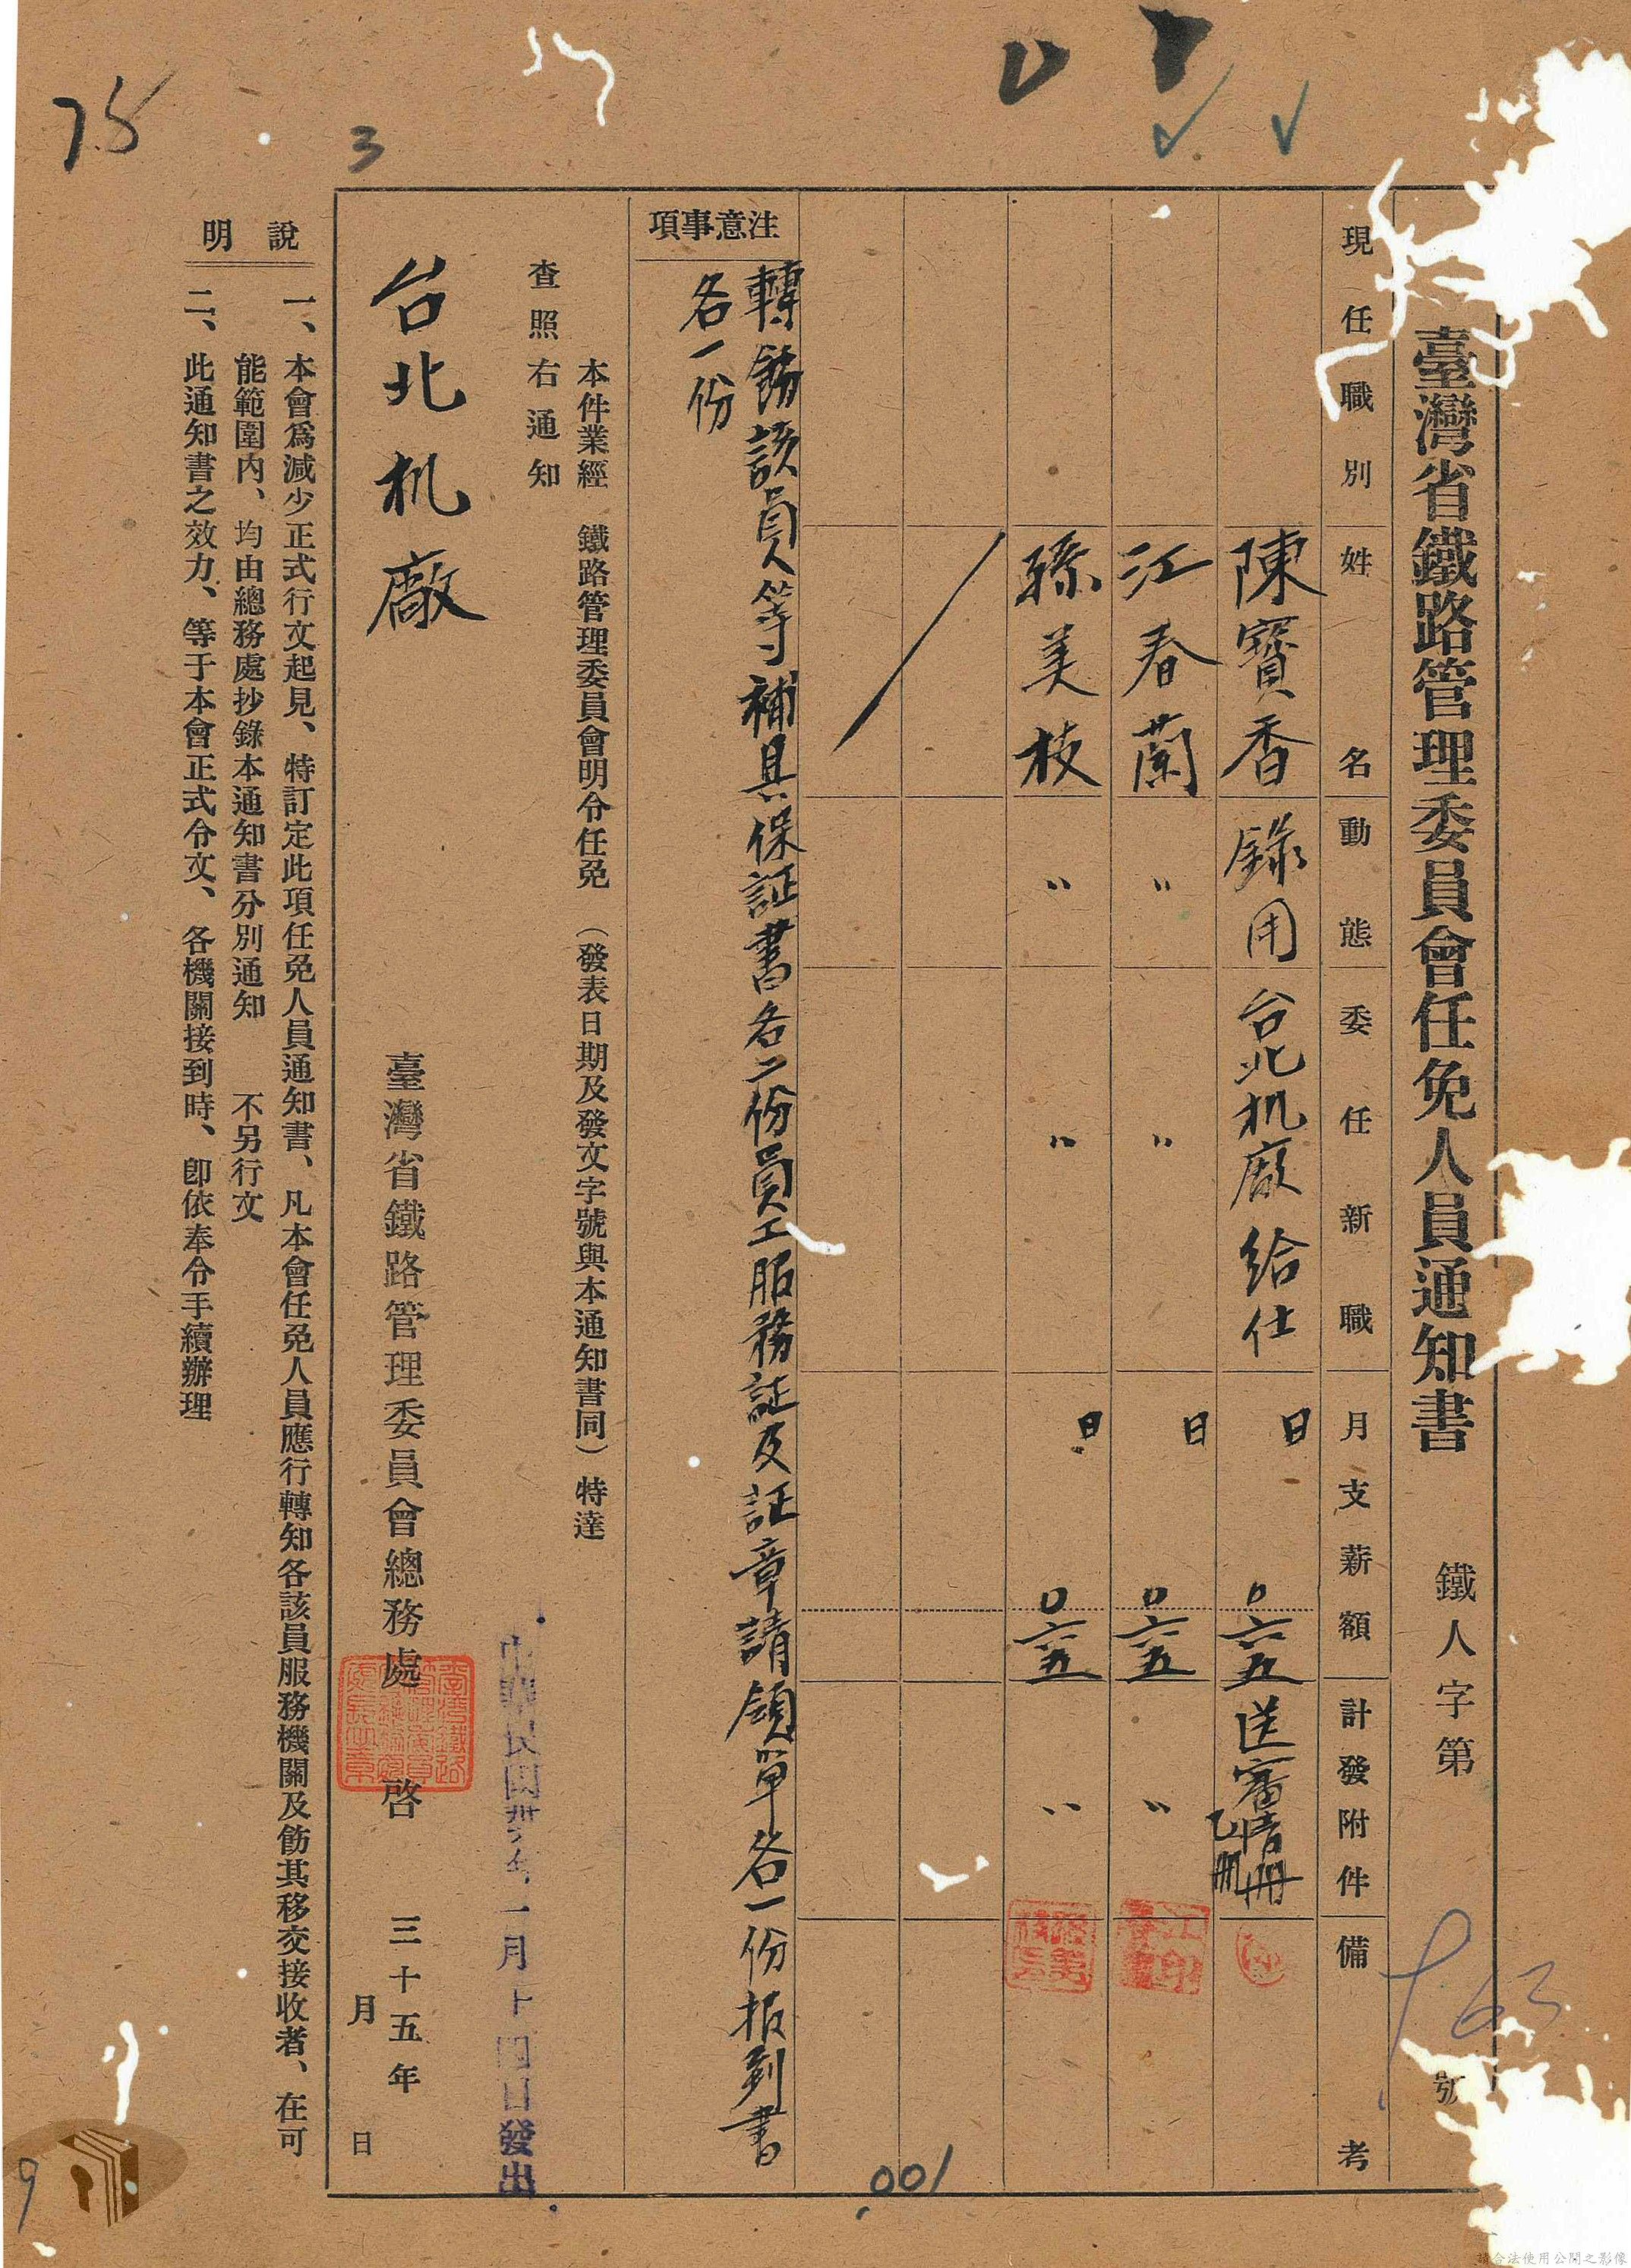 臺灣省鐵路管理委員會任免人員通知書
鐵人字第
763
號
現任職別
姓名
動態
委任新職
月支薪額
計發附件
備考
陳寶香
錄用
台北机廠給仕
日
送審清冊
乙冊
江春蘭
〃
〃
日
〃
孫美枝
〃
〃
日
〃
注意事項
轉飭該員等補具保証書各二份員工服務証及証章請領單各一份报到書
各一份
本件業經 鐵路管理委員會明令任免 (發表日期及發文字號與本通知書同) 特達
查照右通知
中華民國卅五年 一月十四日發出
台北机廠
臺灣省鐵路管理委員會總務處 啓
三十五年
月 日
說明
一、本會爲減少正式行文起見、特訂定此項任免人員通知書、凡本會任免人員應行轉知各該員服務機關及飭其移交接收者、在可
能範圍內、均由總務處抄錄本通知書分別通知 不另行文
二、此通知書之效力、等于本會正式令文、各機關接到時、卽依奉令手續辦理
75
3
001
9
請合法使用公開之影像